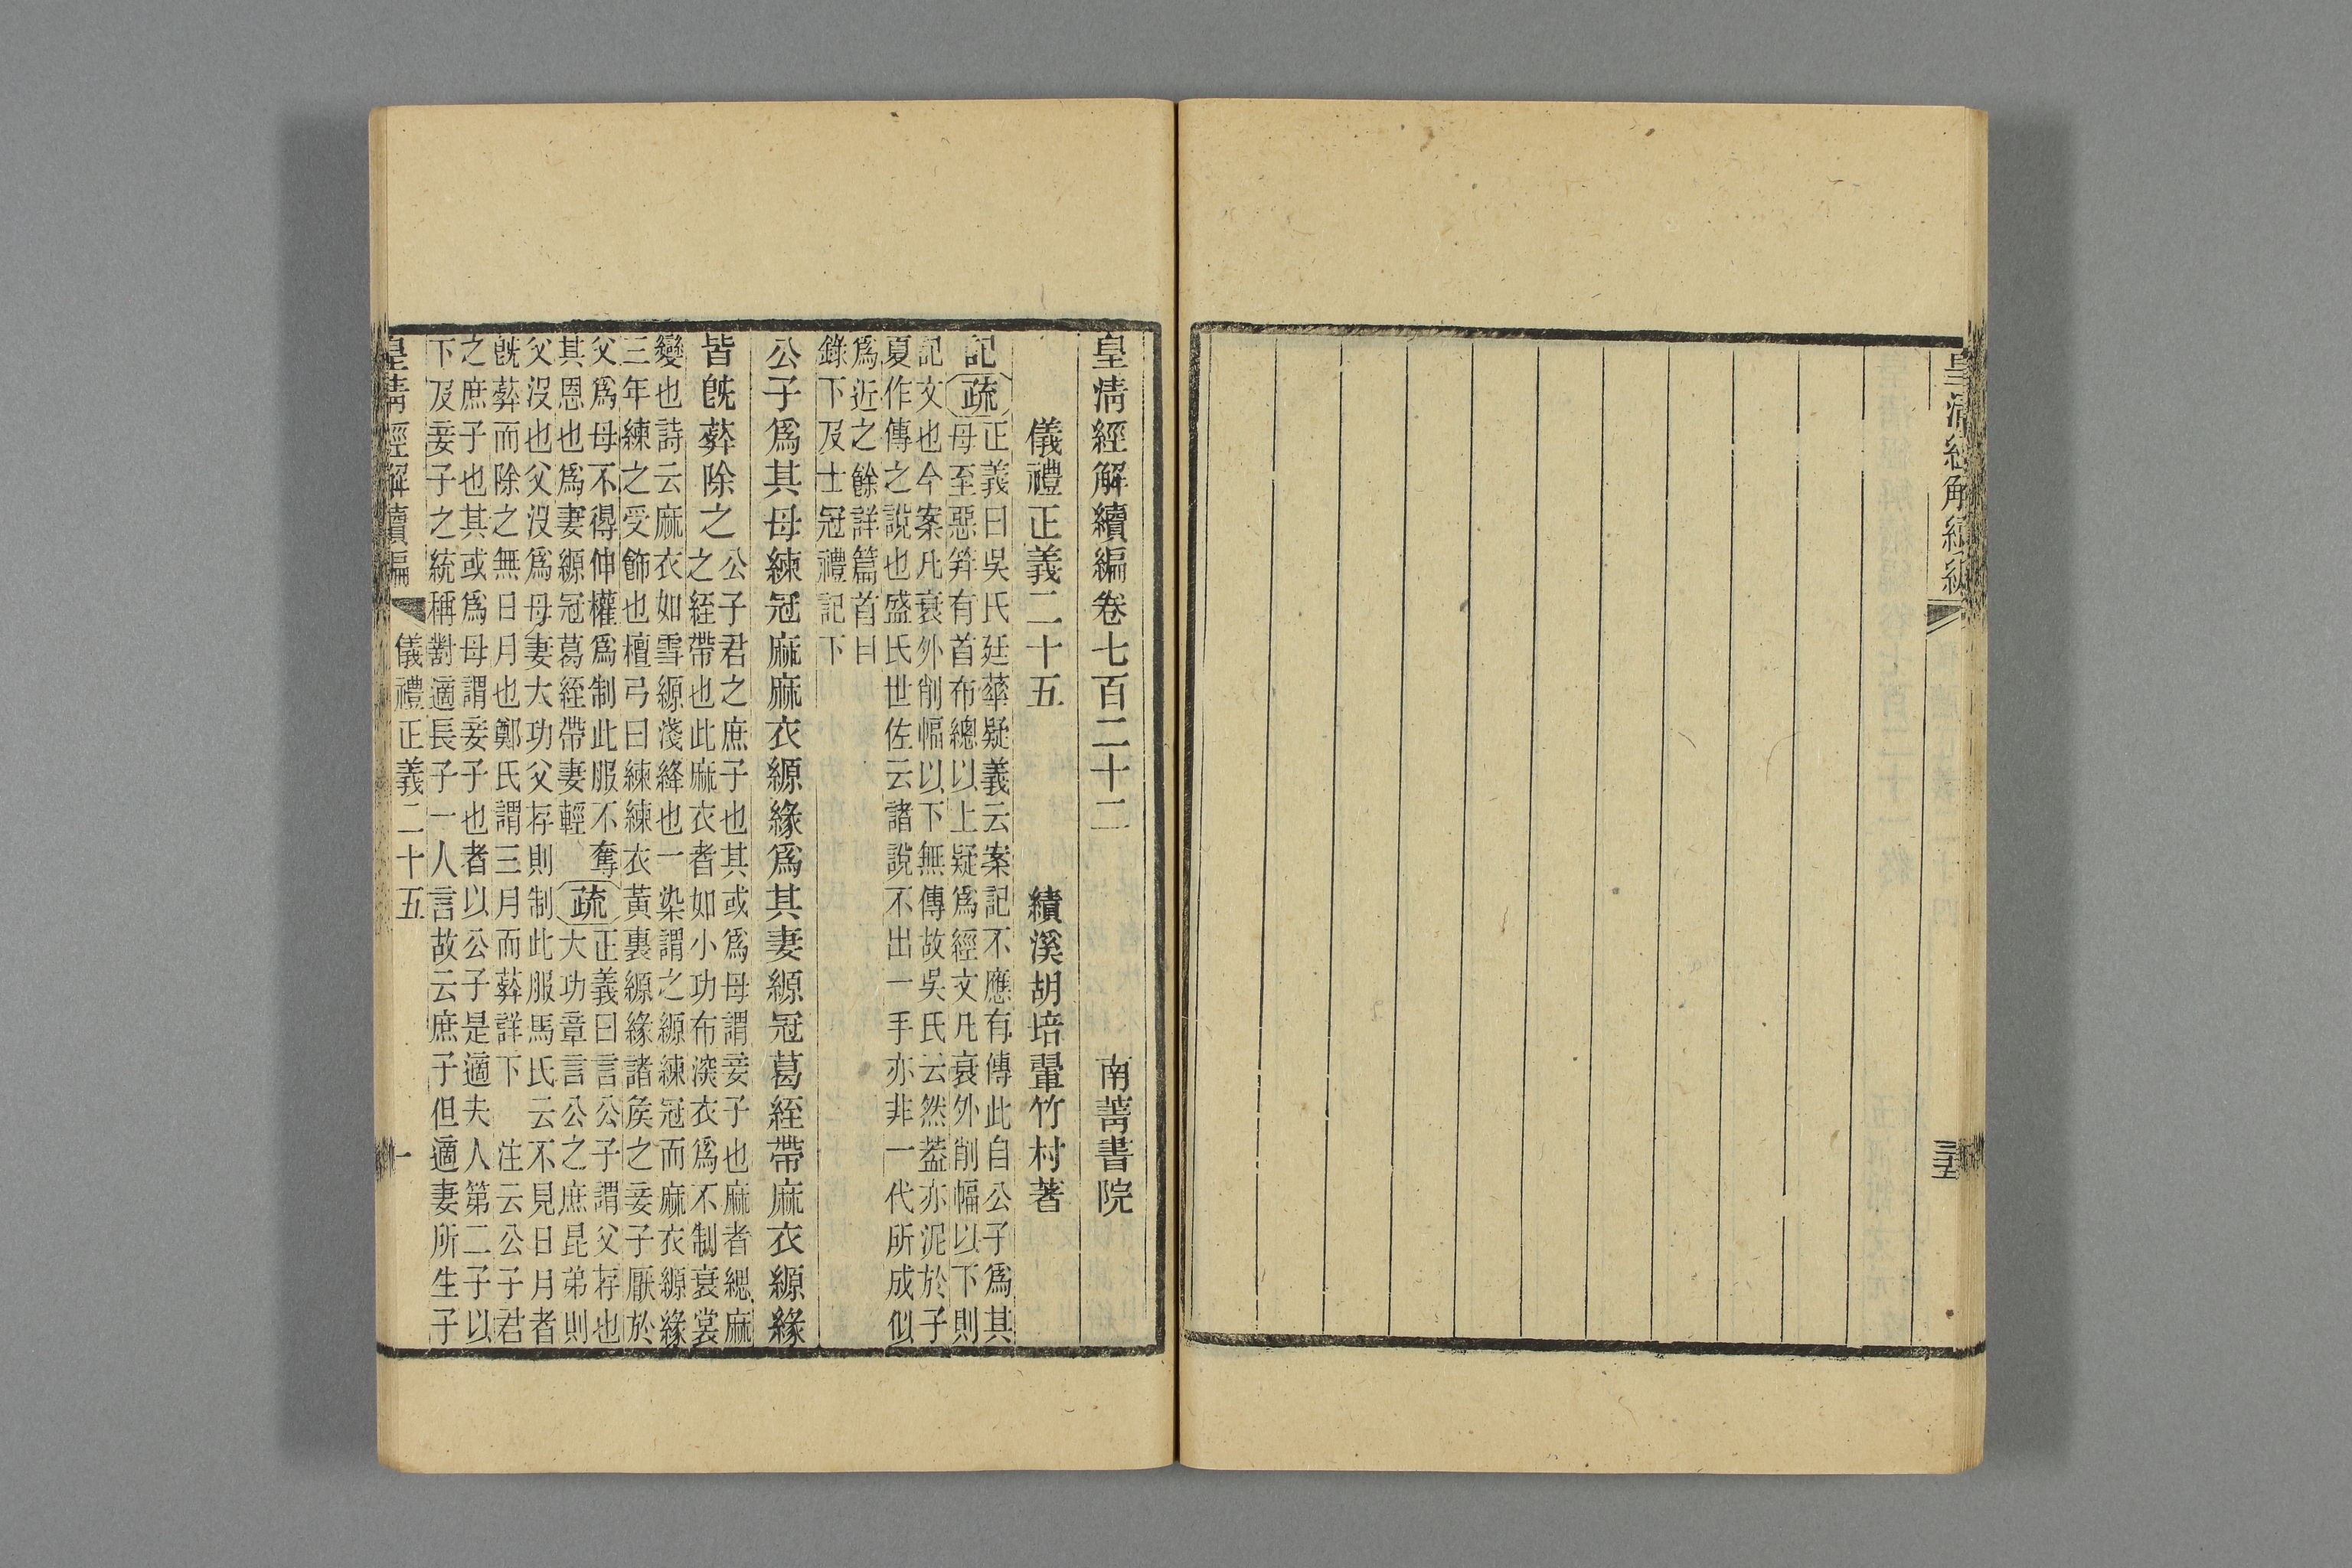 皇清經解續編
三十五
皇清經解續編卷七百二十二 南菁書院
儀禮正義二十五 績溪胡培翬竹村著
記疏
正義曰吳氏廷華疑義云案記不應有傳此自公子爲其
母至惡笄有首布總以上疑爲經文凡衰外削幅以下則
記文也今案凡衰外削幅以下無傳故吳氏云然葢亦泥於子
夏作傳之說也盛氏世佐云諸說不出一手亦非一代所成似
爲近之餘詳篇首曰
錄下及士冠禮記下
公子爲其母練冠麻麻衣縓緣爲其妻縓冠葛絰帶麻衣縓緣
皆旣葬除之
公子君之庶子也其或爲母謂妾子也麻者緦麻
之絰帶也此麻衣者如小功布深衣爲不制衰裳
變也詩云麻衣如雪縓淺絳也一染謂之縓練冠而麻衣縓緣
三年練之受飾也檀弓曰練練衣黃裏縓緣諸矦之妾子厭於
父爲母不得伸權爲制此服不奪
其恩也爲妻縓冠葛絰帶妻輕
疏
正義曰言公子謂父存也
大功章言公之庶昆弟則
父沒也父沒爲母妻大功父存則制此服馬氏云不見日月者
旣葬而除之無日月也鄭氏謂三月而葬詳下 注云公子君
之庶子也其或爲母謂妾子也者以公子是適夫人第二子以
下及妾子之統稱對適長子一人言故云庶子但適妻所生子
皇清經解續編 儀禮正義二十五 一